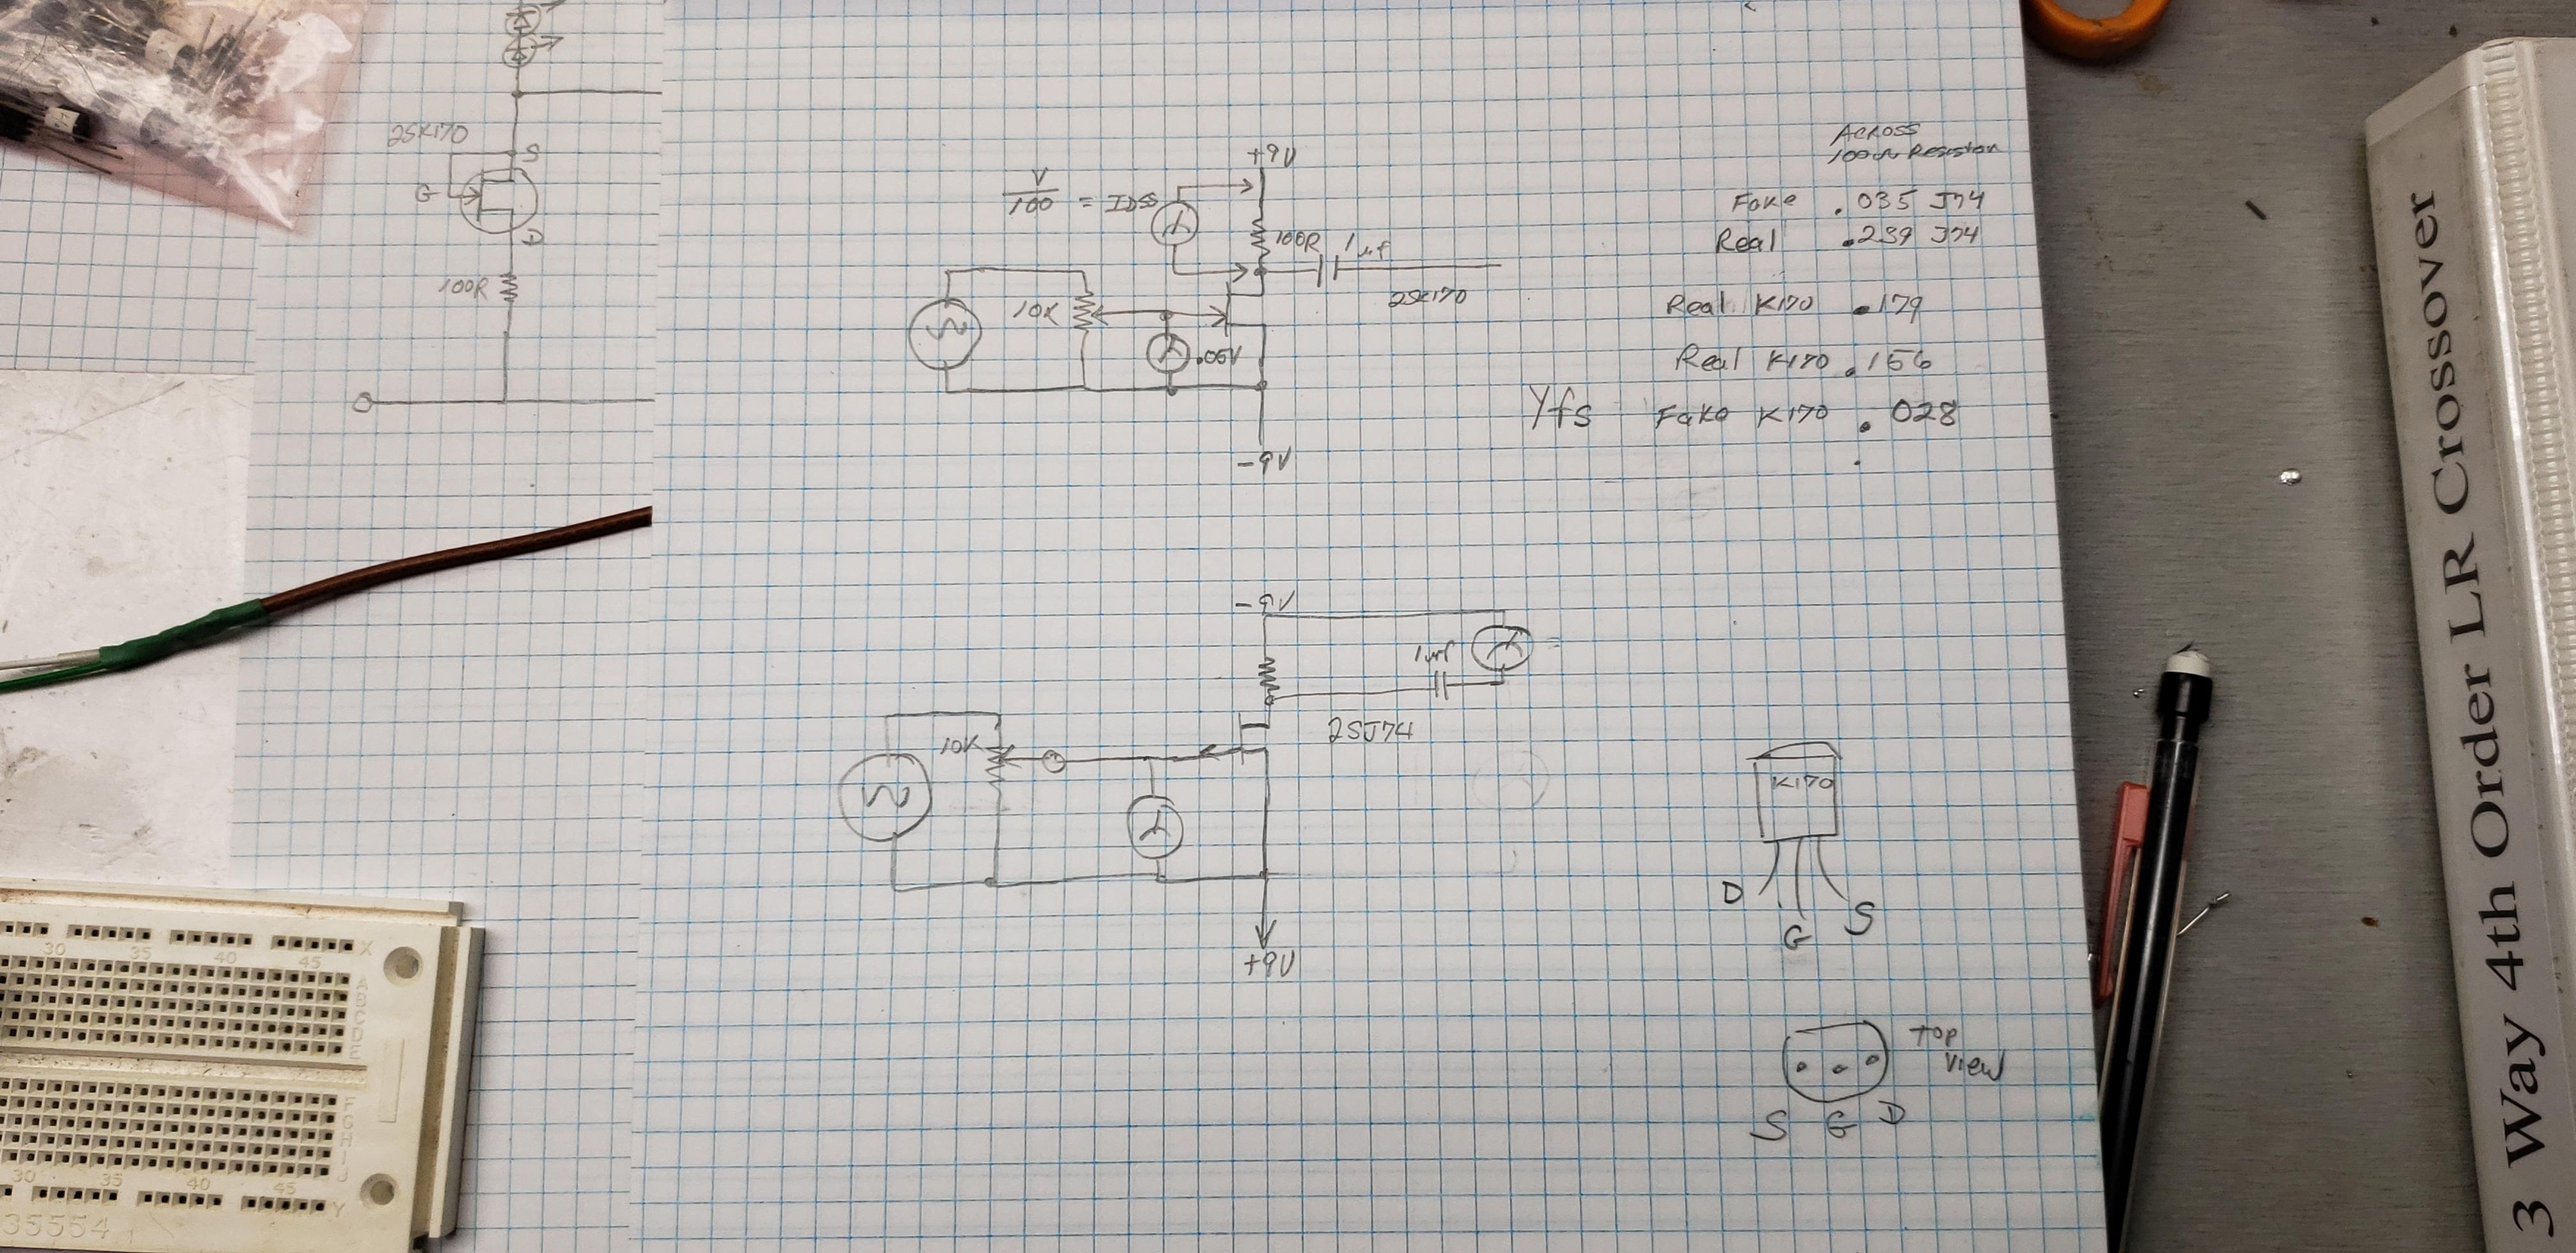 2SK170
S
G
D
100R
+9V
V
100 = IDSS
100R
1µf
10K
2SK170
.05V
-9V
ACROSS
100Ω Resistor
Fake .035 J74
Real .239 J74
Real K170 .179
Real K170 .156
Yfs Fake K170 .028
-9V
1µf
10K
2SJ74
+9V
K170
D
G
S
Top
View
S G D
30 35 40 45 X
A
B
C
D
E
F
G
H
I
J
30 35 40 45 Y
35554
3 Way 4th Order LR Crossover